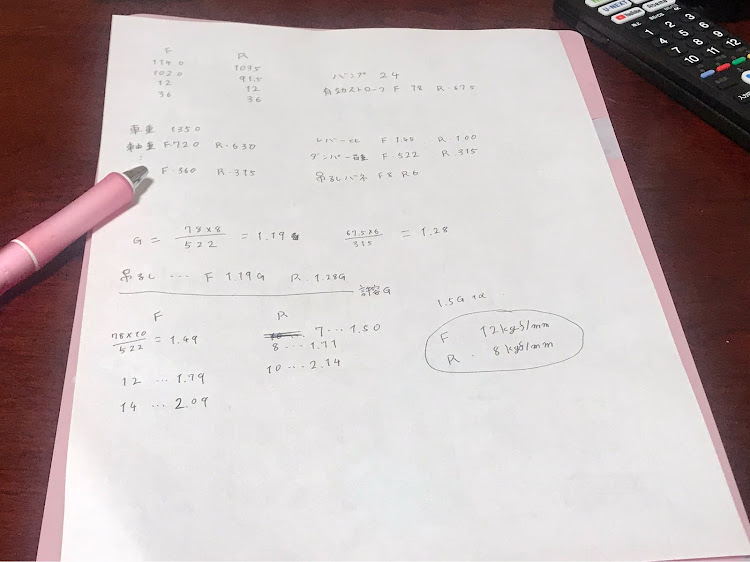 F R
1140 1035
1020 915
12 12
36 36
バンプ 24
有効ストローク F 78 R・67.5
車重 1350
軸重 F.720 R・630
: F・360 R・315
レバー比 F 1.45 R 1.00
ダンパー荷重 F.522 R 315
吊るしバネ F8 R6
G = 78×8/522 = 1.19
67.5×6/315 = 1.28
吊るし … F 1.19G R.1.28G
許容G
F
78×10/522 = 1.49
12 … 1.79
14 … 2.09
R
7 … 1.50
8 … 1.71
10 … 2.14
1.5G +α
F. 12kgf/mm
R. 8kgf/mm
U-NEXT
YouTube
1 2 3
4 5 6
7 8 9
10 11 12